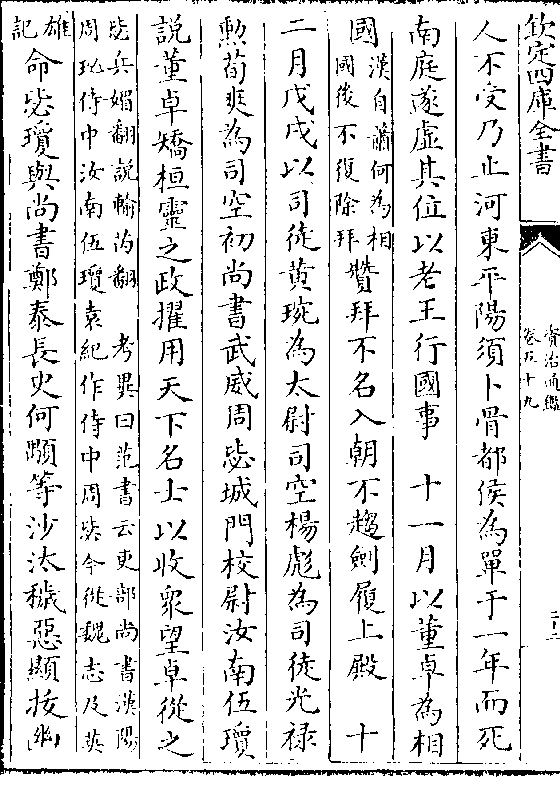 欽定四庫全書
資治通鑑
卷五十九
人不受乃止河東平陽須卜骨都侯為單于一年而死
南庭遂虛其位以老王行國事　十一月以董卓為相
國漢自蕭何為相國後不復除拜贊拜不名入朝不趨劍履上殿　十
二月戊戌以司徒黄琬為太尉司空楊彪為司徒光禄
勲荀爽為司空初尚書武威周毖城門校尉汝南伍瓊
説董卓矯桓靈之政擢用天下名士以收衆望卓從之
毖兵媚翻説輸芮翻　考異曰范書云吏部尚書漢陽周珌侍中汝南伍瓊袁紀作侍中周毖今從魏志及英
雄記命毖瓊與尚書鄭泰長史何顒等沙汰穢惡顯抜幽